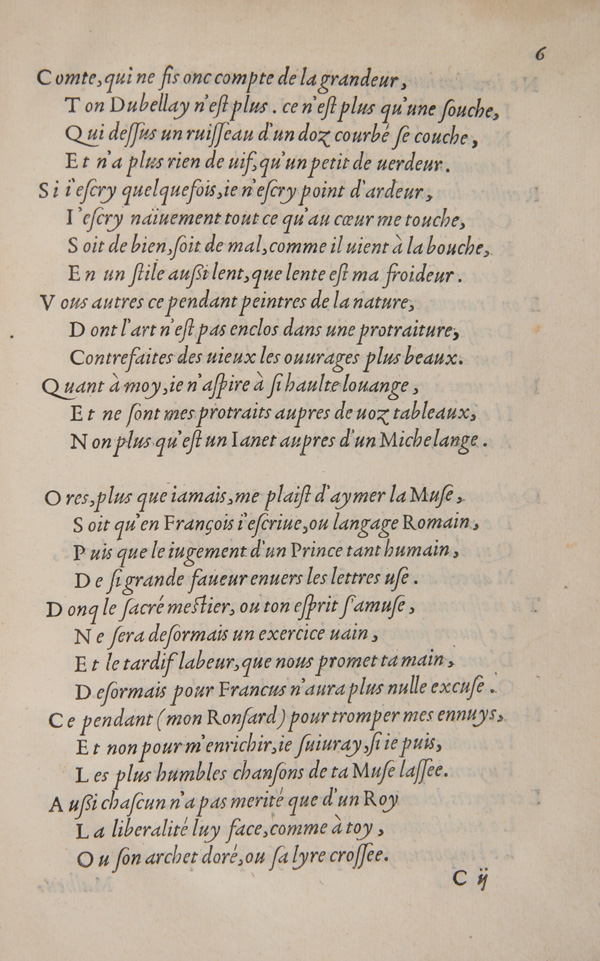 6
Comte, qui ne fis onc compte de la grandeur,
Ton Dubellay n'est plus. ce n'est plus qu'une souche,
Qui dessus un ruisseau d'un doz courbé se couche,
Et n'a plus rien de uif, qu'un petit de uerdeur.
Si i'escry quelquefois, ie n'escry point d'ardeur,
I'escry naïuement tout ce qu'au cœur me touche,
Soit de bien, soit de mal, comme il uient à la bouche,
En un stile aussi lent, que lente est ma froideur.
Vous autres ce pendant peintres de la nature,
Dont l'art n'est pas enclos dans une protraiture,
Contrefaites des uieux les ouurages plus beaux.
Quant à moy, ie n'aspire à si haulte louange,
Et ne sont mes protraits aupres de uoz tableaux,
Non plus qu'est un Ianet aupres d'un Michelange.
Ores, plus que iamais, me plaist d'aymer la Muse,
Soit qu'en François i'escriue, ou langage Romain,
Puis que le iugement d'un Prince tant humain,
De si grande faueur enuers les lettres use.
Donq le sacré mestier, ou ton esprit s'amuse,
Ne sera desormais un exercice uain,
Et le tardif labeur, que nous promet ta main,
Desormais pour Francus n'aura plus nulle excuse.
Ce pendant (mon Ronsard) pour tromper mes ennuys,
Et non pour m'enrichir, ie suiuray, si ie puis,
Les plus humbles chansons de ta Muse lassee.
Aussi chascun n'a pas merité que d'un Roy
La liberalité luy face, comme à toy,
Ou son archet doré, ou sa lyre crossee.
C ij